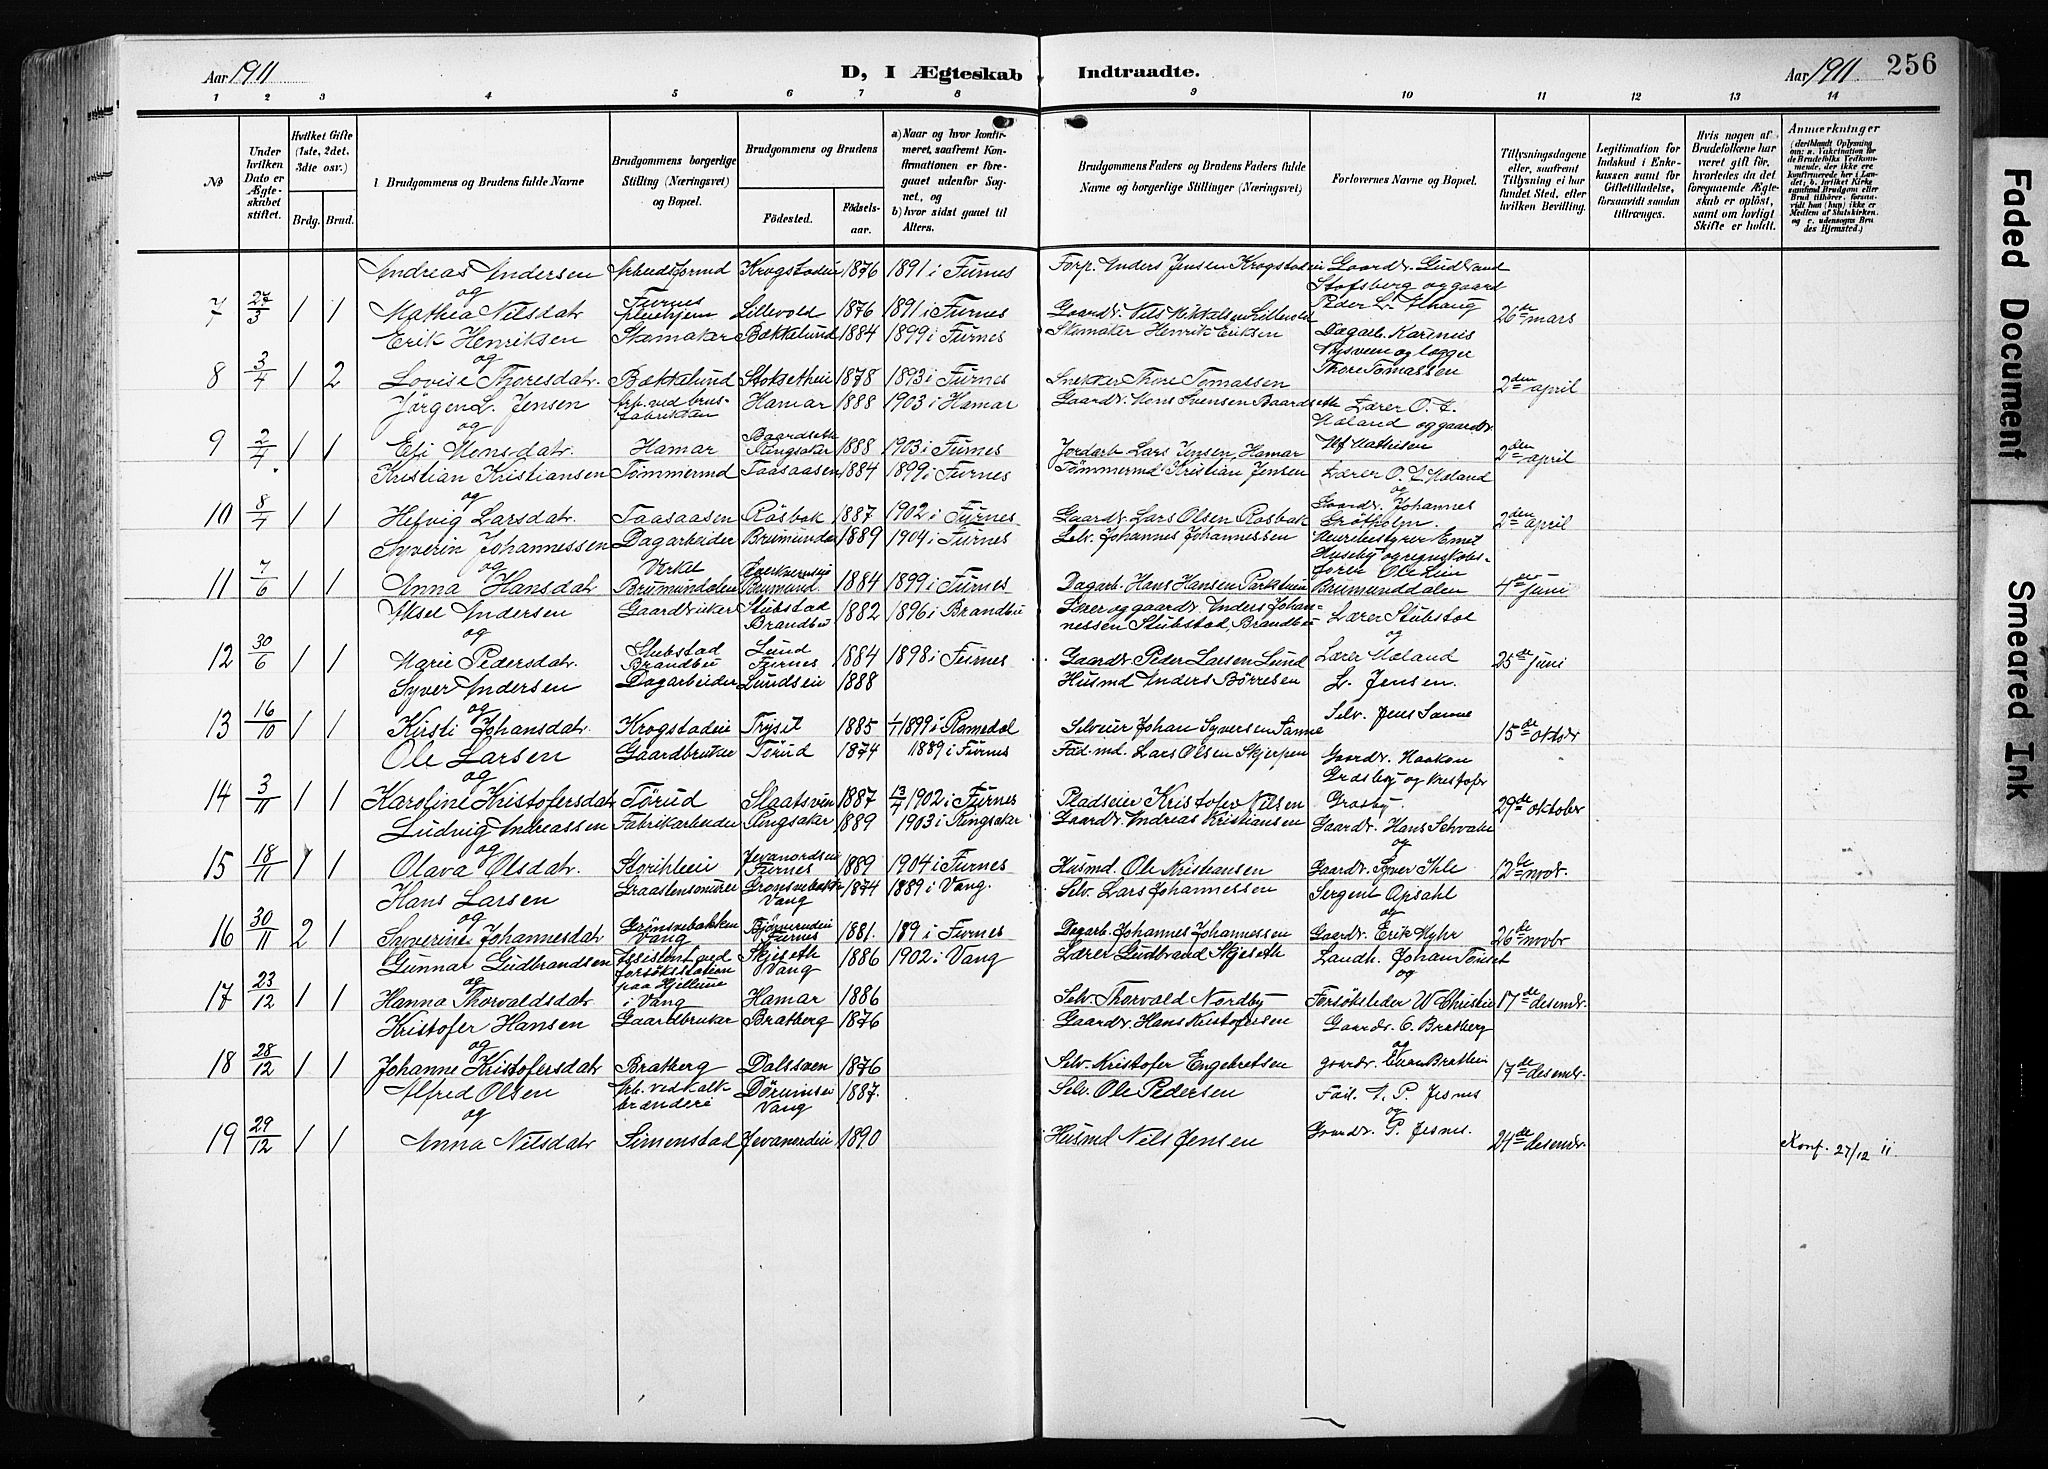 Aar 1911 D, I Ægteskab Indtraadte. Aar 1911. 256
1 2 3 4 5 6 7 8 9 10 11 12 13 14
No
Under hvilken Dato er Ægteskabet stiftet.
Hvilket Gifte (1ste, 2det, 3dte osv.)
Brdg. Brud.
Brudgommens og Brudens fulde Navne
Brudgommens borgerlige Stilling (Næringsvei) og Bopæl.
Brudgommens og Brudens
Fødested. Fødselsaar.
a) Naar og hvor konfirmeret, saafremt Konfirmationen er foregaaet udenfor Sognet, og
b) hvor sidst gaaet til Alters.
Brudgommens Faders og Brudens Faders fulde Navne og borgerlige Stillinger (Næringsvei)
Forlovernes Navne og Bopæl.
Tillysningsdagene eller, saafremt Tillysning ei har fundet Sted, efter hvilken Bevilling.
Legitimation for Indskud i Enkekassen samt for Giftetilladelse, forsaavidt saadan tiltrænges.
Hvis nogen af Brudefolkene har været gift før, hvorledes da det foregaaende Ægteskab er opløst, samt om lovligt Skifte er holdt.
Anmærkninger
Andreas Andersen Arbeidsformd Krogstadeie 1876 1891 i Furnes Forp. Anders Jensen Krogstadeie Gaardbr. Gudbrand
og Furnes Stofsberg og gaard
7 27/3 1 1 Mathea Nilsdatr Pleiehjem Lillevold 1876 1891 i Furnes Gaardbr. Nils Mikkelsen Lillevold Peder L. Alhaug 26de mars
Erik Henriksen Skomaker Bækkelund 1884 1899 i Furnes Skomaker Henrik Eriksen Dagarb. Karinius
og Nysveen og lægger
8 3/4 1 2 Lovise Thoresdatr. Bækkelund Stoksetheie 1878 1893 i Furnes Snekker Thore Tomassen Thore Tomassen 2den april
Jørgen L. Jensen Arb. ved brusfabrikken Hamar 1888 1903 i Hamar Gaardbr. Mons Svensen Baardseth Lærer O. T.
og Moland og gaardbr
9 2/4 1 1 Eli Monsdatr. Hamar Baardseth Ringsaker 1888 1903 i Furnes Jordarb Lars Jensen, Hamar Alf Mathisen 2den april
Kristian Kristiansen Tømmermd Taasaasen 1884 1899 i Furnes Tømmermd Kristian Jensen Lærer O. T. Moland
og og
10 8/4 1 1 Hefvig Larsdatr. Taasaasen Røsbak 1887 1902 i Furnes Gaardbr. Lars Olsen Røsbak Gaardbr. Johannes Grøtholm. 2den april
Syverin Johannessen Dagarbeider Brumunddal 1889 1904 i Furnes Selv. Johannes Johannessen Meieribestyrer Emil
og Virket Huseby og regnskabs-
11 7/6 1 1 Anna Hansdatr. Brumunddalen Brumund 1884 1899 i Furnes Dagarb. Hans Hansen Parkstueie fører Ole Lien Brumunddalen 4de juni
Aksel Andersen Gaardbruker Stubstad Brandbu 1882 1896 i Brandbu Lærer og gaardbr. Anders Johannessen Stubstad, Brandbu Lærer Stubstad
og og
12 30/6 1 1 Marie Pedersdatr. Stubstad Brandbu Lund Furnes 1884 1898 i Furnes Gaardbr Peder Larsen Lund Lærer Moland 25de juni
Syver Andersen Dagarbeider Lundseie 1888 Husmd Anders Børresen L. Jensen.
og
13 16/10 1 1 Kristi Johansdatr. Krogstadeie Trysil 1885 1899 i Romedal Selveier Johan Syversen Sanne Selv. Jens Sanne 15de oktbr
Ole Larsen Gaardbruker Tørud 1874 1889 i Furnes Føderaadsmd. Lars Olsen Skjerpen Gaardbr. Haakon
og Grøsby og Kristofer
14 3/11 1 1 Karoline Kristofersdatr Tørud Slaatsven 1887 13/4 1902 i Furnes Pladseier Kristofer Nilsen Grøsby. 29de oktober
Ludvig Andreassen Fabrikarbeider Ringsaker 1889 1903 i Ringsaker Gaardbr. Andreas Kristiansen Gaardbr. Hans Schvalu
og og
15 18/11 1 1 Olava Olsdatr. Storihleie Jevanordseie Furnes 1889 1904 i Furnes Husmd. Ole Kristiansen Gaardbr. Syver Ihle 12te novbr.
Hans Larsen Graastensmurer Grønsvebakk Vang 1874 1889 i Vang. Selv. Lars Johannessen Sergent Opsahl
og og
16 30/11 2 1 Syverine Johannesdatr Grønsvebakken Vang Bjørnerudeie Furnes 1881. 189 i Furnes Dagarb. Johannes Johannessen Gaardbr. Erik Myhr 26de novbr
Gunnar Gudbrandsen Assistent ved forsøksstation Skjeseth Vang 1886 1902 i Vang Lærer Gudbrand Skjeseth Landh. Johan Touset
og paa Hjellum og
17 23/12 1 1 Hanna Thorvaldsdatr i Vang Hamar 1886 Selv. Thorvald Nordby Forsøksleder W Christie 17de desembr.
Kristofer Hansen Gaardbruker Bratberg 1876 Gaardbr. Hans Kristofersen Gaardbr. C. Bratberg
og og
18 28/12 1 1 Johanne Kristofersdatr Bratberg Dalssven 1876 Selv Kristofer Engebretsen gaardbr Bratlien 17de desembr.
Alfred Olsen Arb. ved kalkbrænderi Dørumseie Vang 1887. Selv. Ole Pedersen Fail. A. P. Jesnes
og og
19 29/12 1 1 Anna Nilsdatr Simenstad Jevanordeie 1890 Husmd Nils Jensen Gaardbr. P. Jesnes. 24de desembr Konf. 27/12 11.
Faded Document
Smeared Ink